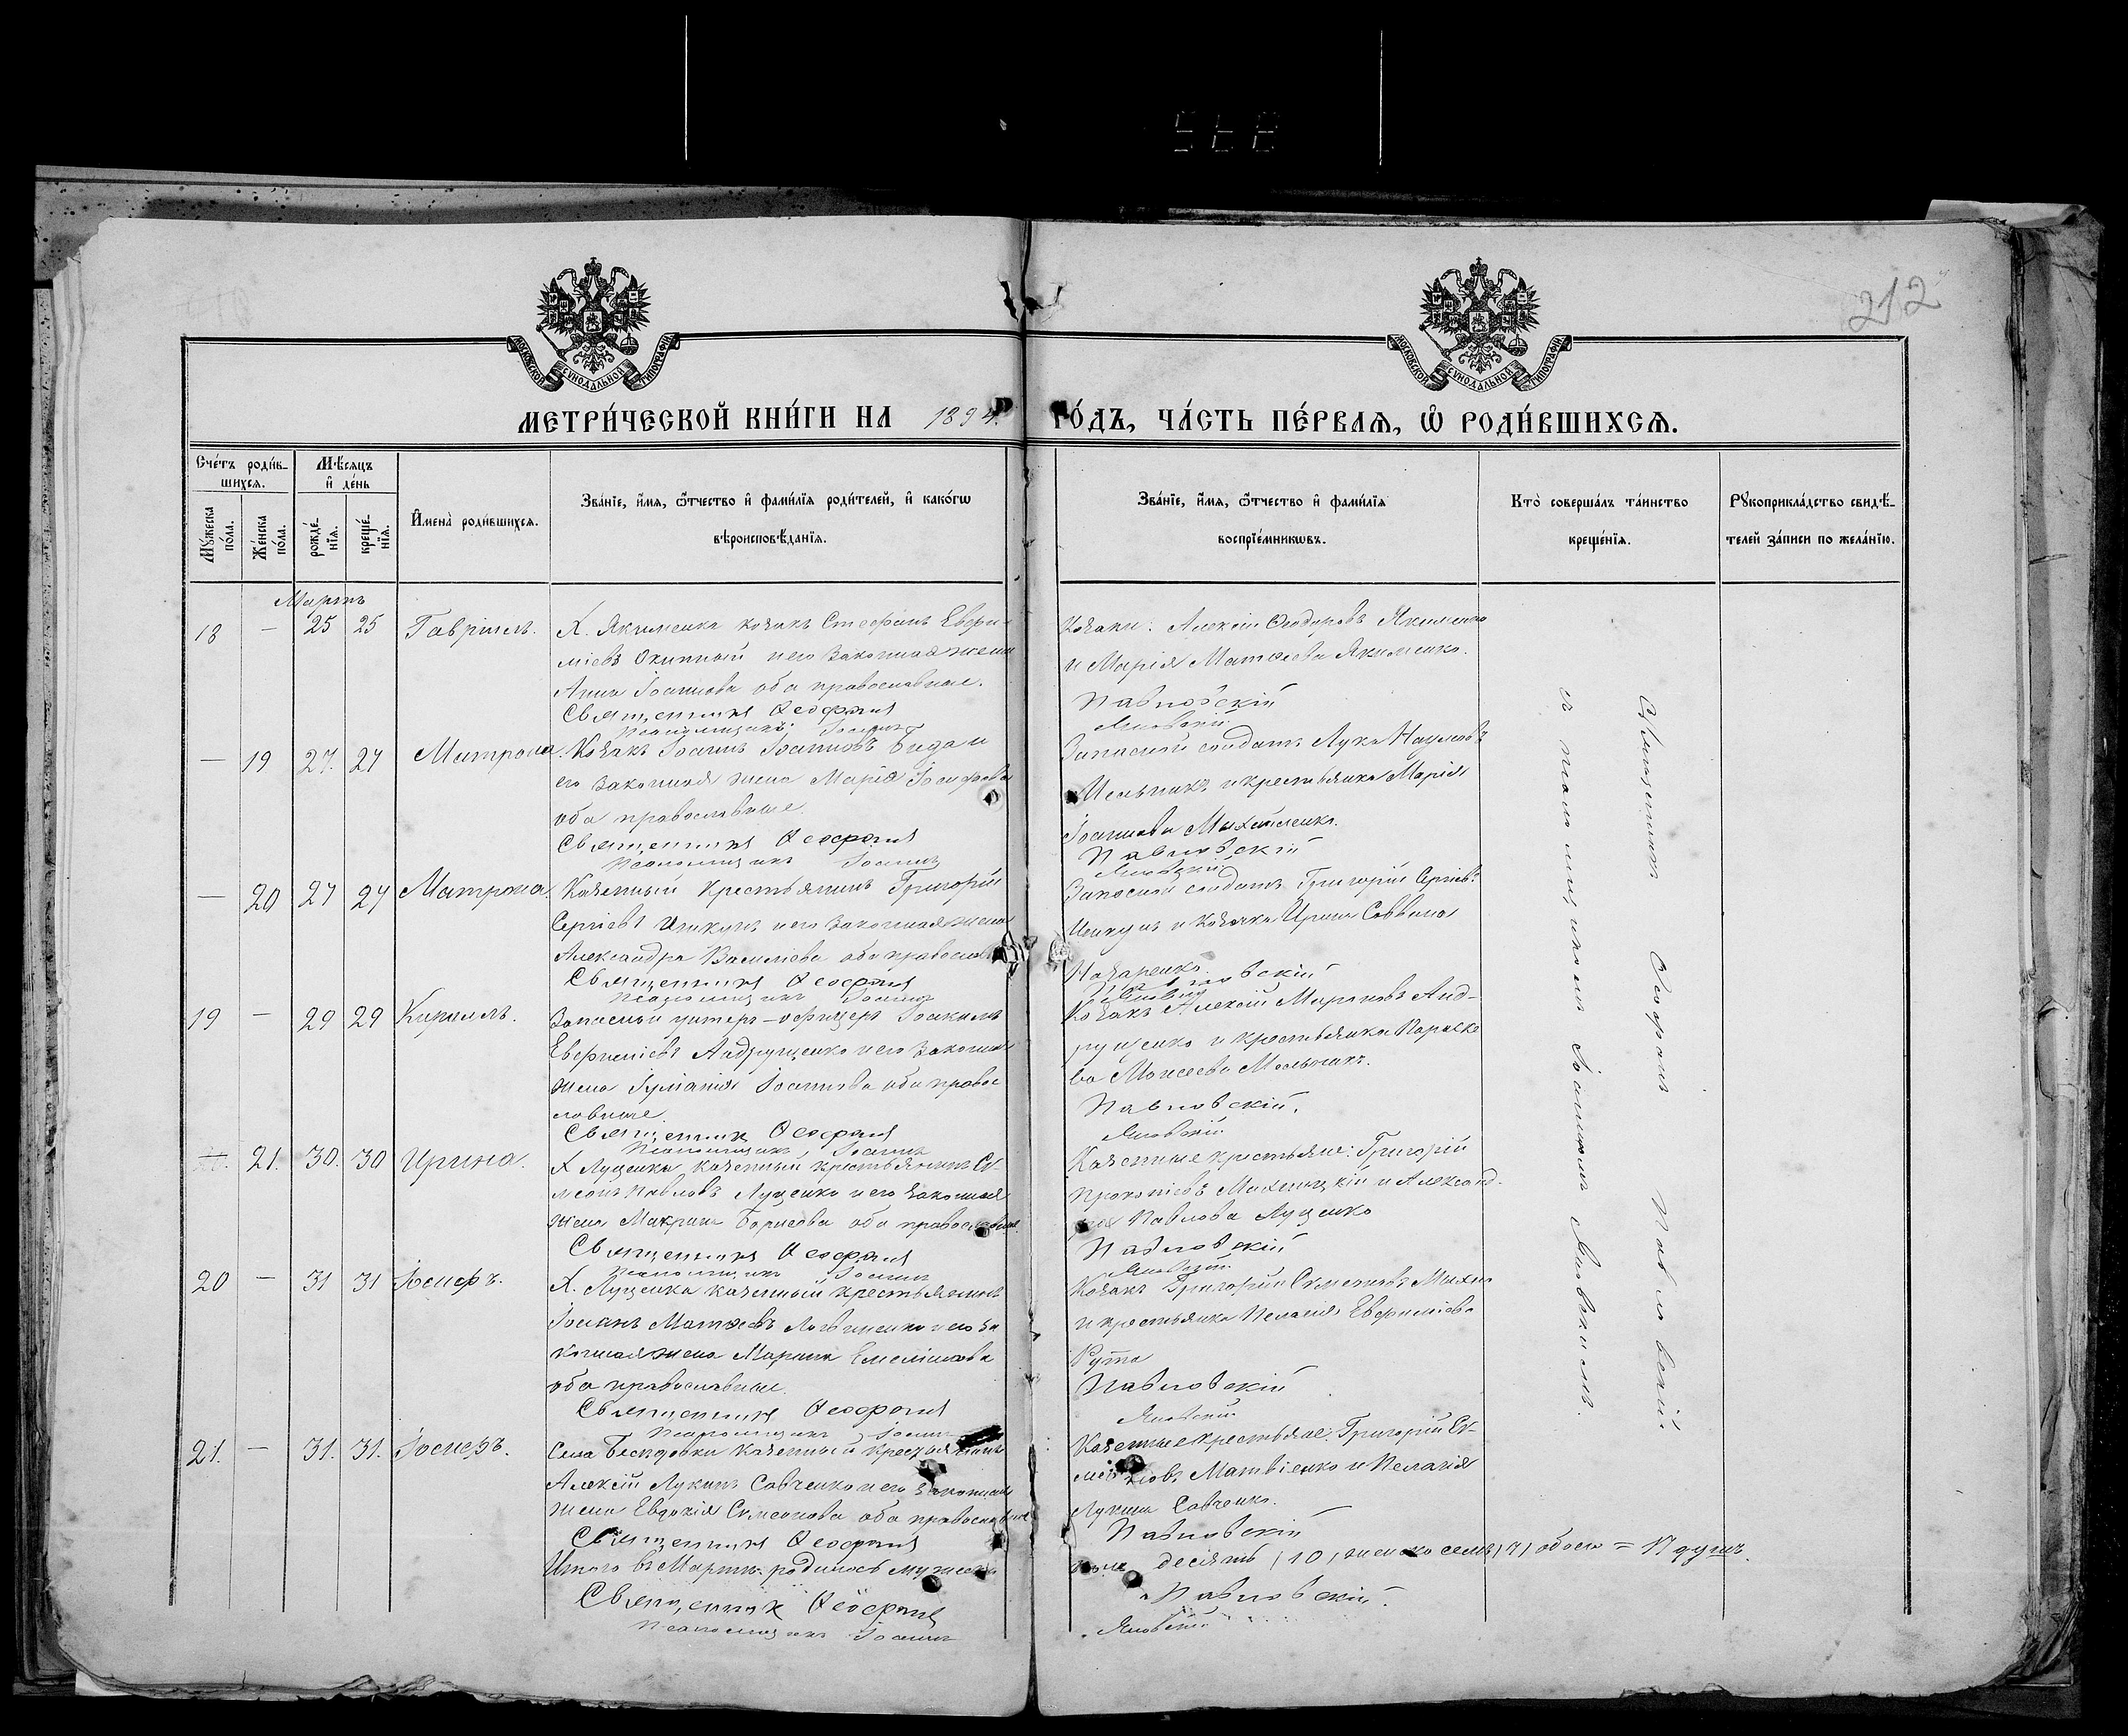 212
МОСКОВСКОЙ СѴНОДАЛЬНОЙ ТИПОГРАФІИ
МОСКОВСКОЙ СѴНОДАЛЬНОЙ ТИПОГРАФІИ
МЕТРИ́ЧЕСКОЙ КНИ́ГИ НА 1894 ГО́ДЪ, ЧА́СТЬ ПЕ́РВАѦ, Ѽ РОДИ́ВШИХСѦ.
Сче́тъ роди́в-
шихсѧ.
Мꙋ́жеска по́ла.
Же́нска по́ла.
Мѣ́сѧцъ
и҆ де́нь
рожде́-
нїѧ.
креще́-
нїѧ.
И҆мена̀ роди́вшихсѧ.
Зва́нїе, и҆́мѧ, ѻ҆́тчество и҆ фами́лїѧ роди́телей, и҆ како́гѡ
вѣроисповѣ́данїѧ.
Зва́нїе, и҆́мѧ, ѻ҆́тчество и҆ фами́лїѧ
воспрїе́мникѡвъ.
Кто̀ соверша́лъ та́инство
креще́нїѧ.
Рꙋкоприкла́дство свидѣ́-
телей за́писи по жела́нїю.
Мартъ
18 — 25 25 Гавріилъ.
Х. Якименка козакъ Стефанъ Евфи-
міевъ Охинный и его законная жена
Анна Іоаннова оба православные.
Священникъ Ѳеофанъ
Псаломщикъ Іоаннъ
Козаки: Алексій Ѳеодоровъ Якименко
и Марія Матѳеева Якименко.
Павловскій
Яновскій
— 19 27. 27 Матрона.
Козакъ Іоаннъ Іоанновъ Бида и
его законная жена Марія Іосифова
оба православные
Священникъ Ѳеофанъ
Псаломщикъ Іоаннъ
Запасной солдатъ Лука Наумовъ
Мельникъ и крестьянка Марія
Іоаннова Михайленко.
Павловскій
Яновскій
— 20 27 27 Матрона.
Казенный крестьянинъ Григорій
Сергіевъ и его законная жена
Александра Василіева оба православ
Священникъ Ѳеофанъ
Псаломщикъ Іоаннъ
Запасной солдатъ Григорій Сергіевъ
и козачка Ирина Саввина
Назаренко.
Павловскій
Яновскій
19 — 29 29 Кириллъ.
Запасный унтеръ-офицеръ Іоакимъ
Евфиміевъ Андрущенко и его законная
жена Іуліанія Іоаннова оба право
славные
Священникъ Ѳеофанъ
Псаломщикъ Іоаннъ
Козакъ Алексій Мироновъ Анд-
рущенко и крестьянка Параске
ва Моисеева Мельникъ.
Павловскій.
Яновскій
— 21. 30. 30 Ирина.
Х Луценка казенный крестьянинъ Си-
меонъ Павловъ Луценко и его законная
жена Макрина Борисова оба православные
Священникъ Ѳеофанъ
Псаломщикъ Іоаннъ
Казенные крестьяне: Григорій
Прокопіевъ и Александ-
ра Павлова Луценко
Павловскій
Яновскій
20 — 31 31 Іосифъ.
Х. Луценка казенный крестьянинъ
Іоаннъ Матѳеевъ Логвиненко и его за
конная жена Марина Емеліанова
оба православные.
Священникъ Ѳеофанъ
Псаломщикъ Іоаннъ
Козакъ Григорій Симеоновъ
и крестьянка Пелагія Евфиміева
Рута
Павловскій
Яновскій
21. — 31. 31. Іосифъ.
Села Бескровки казенный крестьянинъ
Алексій Лукинъ Савченко и его законная
жена Евдокія Симеонова оба православные
Священникъ Ѳеофанъ
Казенные крестьяне: Григорій Си-
меоновъ Матвіенко и Пелагія
Лукина Савченко.
Павловскій
Итого въ Мартѣ родилось мужеска
пола десять (10), женска семь (7) обоего = 17 душъ.
Священникъ Ѳеофанъ Павловскій.
Псаломщикъ Іоаннъ Яновскій
Священникъ Ѳеофанъ Павловскій
съ псаломщикомъ Іоанномъ Яновскимъ.